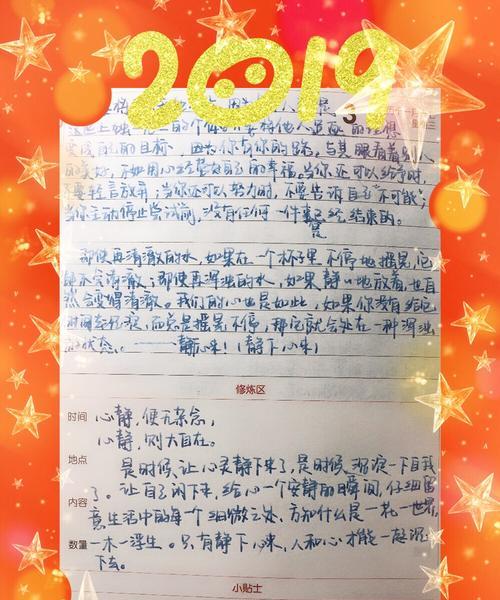 2019
3
这世上独一无二的个体。不要将他人
要效仿的目标，因为你有你的路，与其眼看着别人
的美好，不如用心经营好自己的幸福。当你还可以给予时，
不要轻言放弃；当你还可以努力时，不要告诉自己"不可能"；
当你主动停止尝试前，没有任何一件事已经结束的。
是
即使再清澈的水，如果在一个杯子里不停地摇晃，它
也不会清澈；即使再浑浊的水，如果静心地放着，也自
然会变得清澈。我们的心也是如此，如果你没有给它
时间去沉淀，而总是摇晃不停，那它就会处在一种浑浊
的状态。——静心咪！（静下心咪）
修炼区
时间 心静，便无杂念，
心静，则大自在。
地点 是时候，让心灵静下来了，是时候，沉淀一下自我
了。让自己闲下来，给心一个安静的瞬间，仔细留
内容 意生活中的每一个细微之处，方知什么是一花一世界，
数量 一木一浮生。只有静下心来，人和心才能一起沉
下去。
小贴士